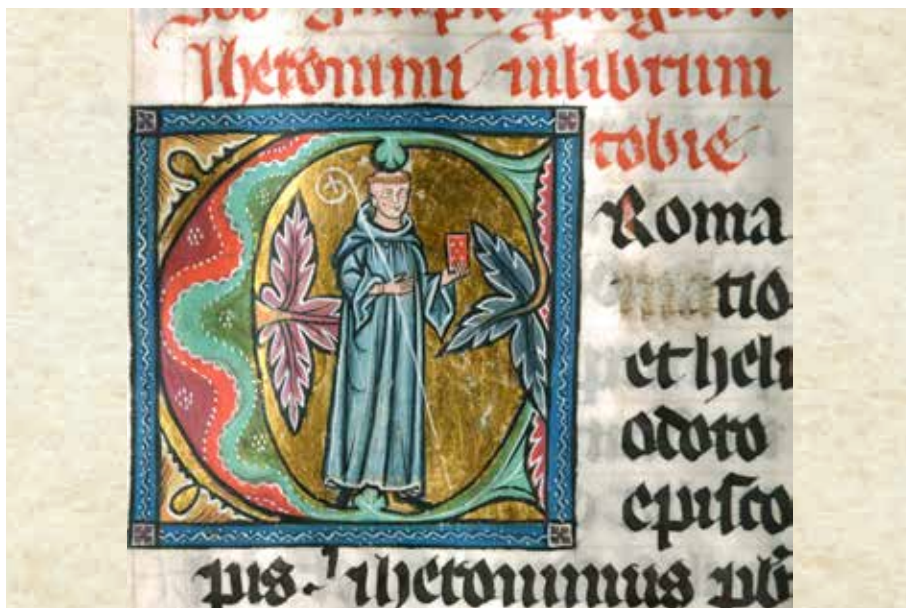 Iheronimi inlibrum
tobie
Roma
tio
et heli
odoro
episco
pis. iheronimus